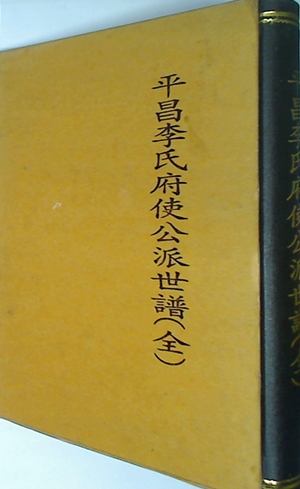 平昌李氏府使公派世譜(全)
平昌李氏府使公派世譜(全)